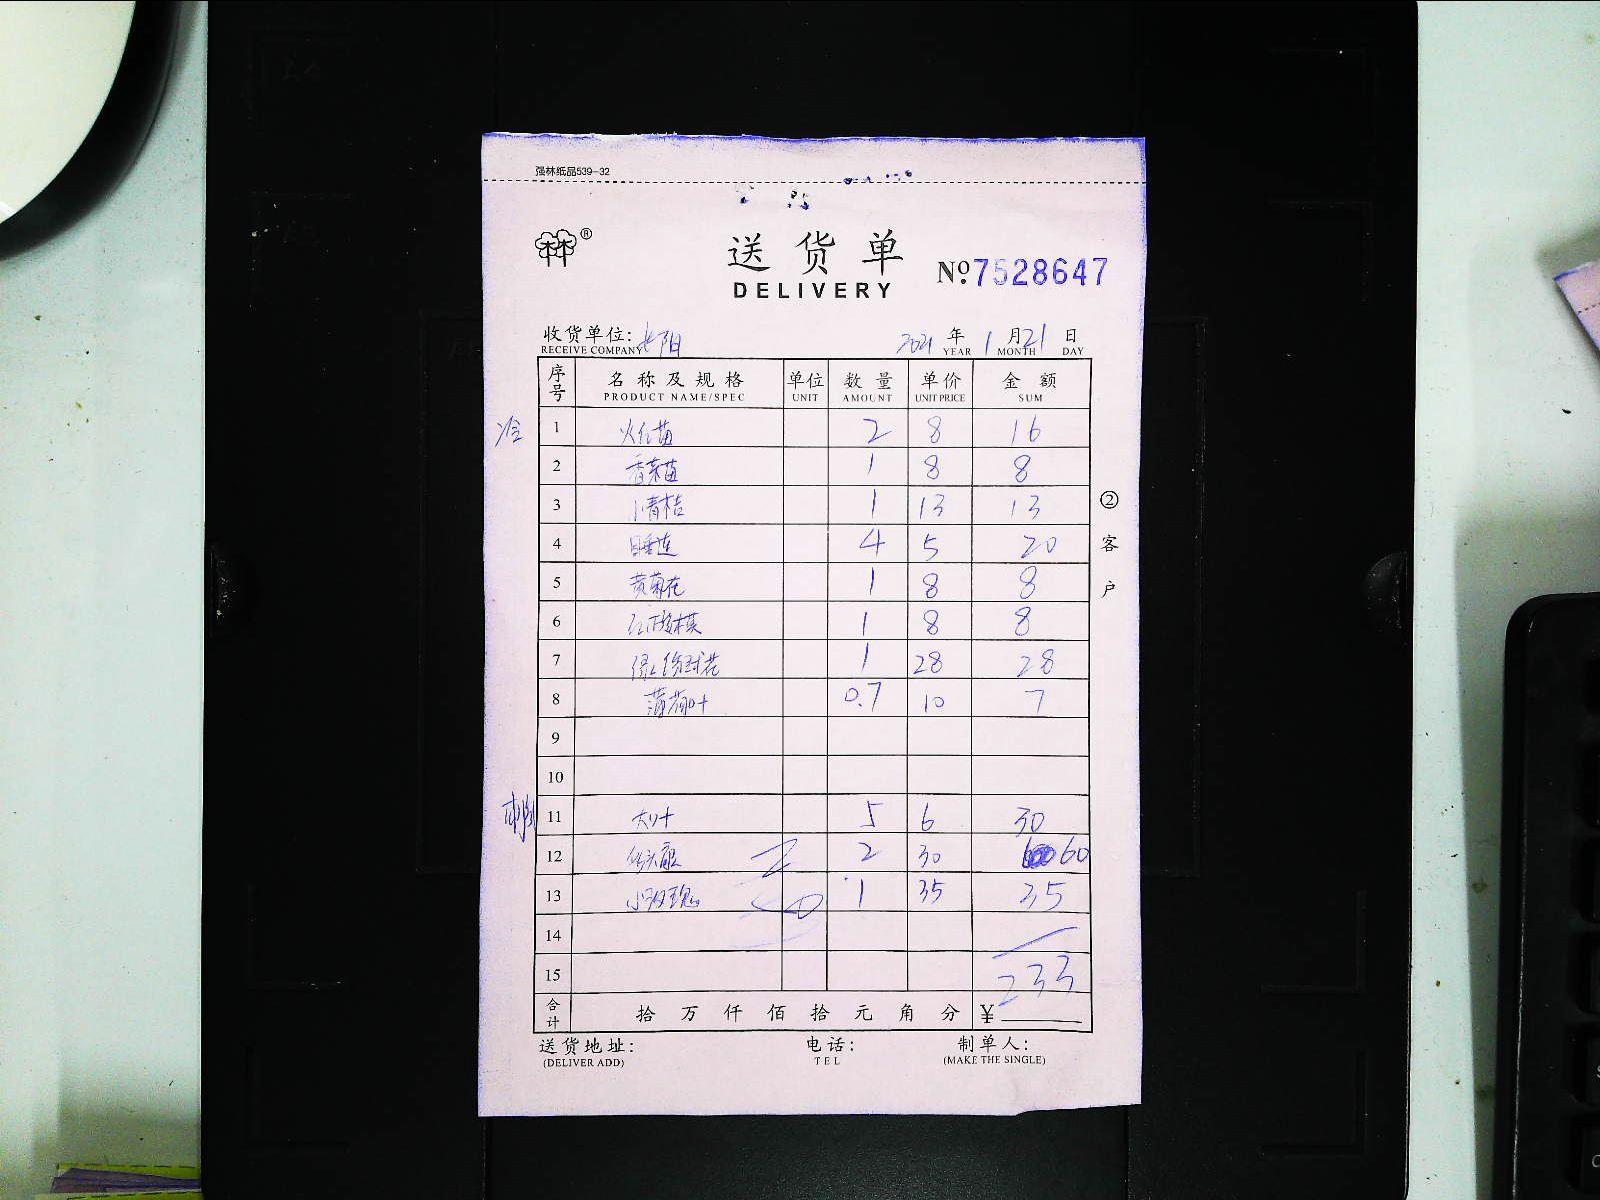 强林纸品539-32
®
送货单
DELIVERY
№:7528647
收货单位: 阳 2021 年 1 月 21 日
RECEIVE COMPANY YEAR MONTH DAY
序号 名称及规格 单位 数量 单价 金额
PRODUCT NAME/SPEC UNIT AMOUNT UNIT PRICE SUM
冷 1 火红苗 2 8 16
2 香菜苗 1 8 8
3 小青桔 1 13 13
4 睡莲 4 5 20
5 黄菊花 1 8 8
6 1 8 8
7 绣球花 1 28 28
8 薄荷叶 0.7 10 7
9
10
11 大叶 5 6 30
12 2 30 60
13 小玫瑰 1 35 35
14
15 233
合计 拾 万 仟 佰 拾 元 角 分 ¥
② 客户
送货地址: 电话: 制单人:
(DELIVER ADD) TEL (MAKE THE SINGLE)